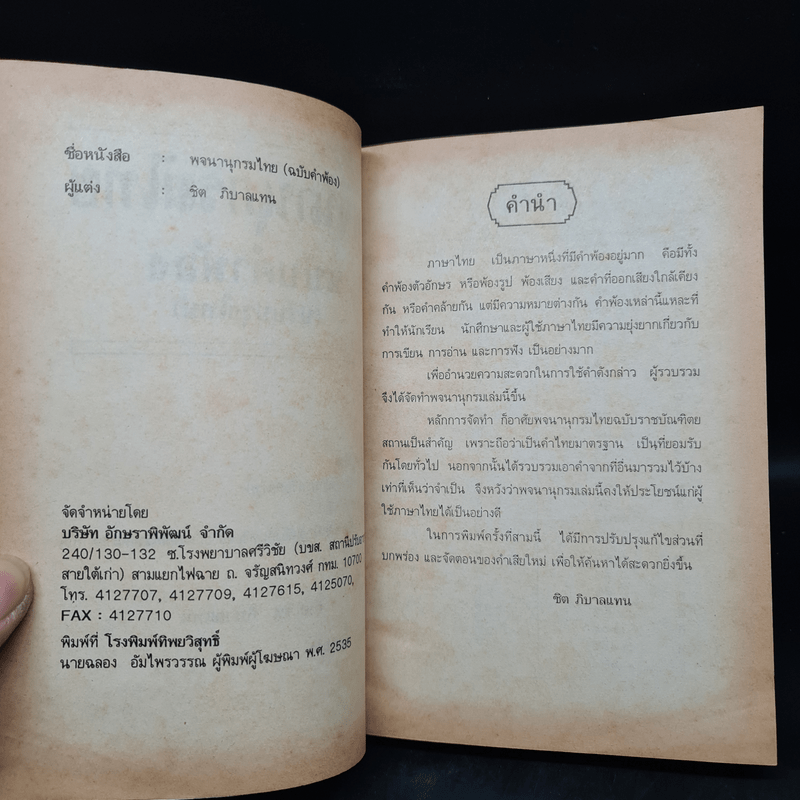 ชื่อหนังสือ : พจนานุกรมไทย (ฉบับคำพ้อง)
ผู้แต่ง : ชิต ภิบาลแทน
จัดจำหน่ายโดย
บริษัท อักษราพิพัฒน์ จำกัด
240/130-132 ซ.โรงพยาบาลศรีวิชัย (บขส. สถานีปรับอากาศ
สายใต้เก่า) สามแยกไฟฉาย ถ. จรัญสนิทวงศ์ กทม. 10700
โทร. 4127707, 4127709, 4127615, 4125070,
FAX : 4127710
พิมพ์ที่ โรงพิมพ์ทิพยวิสุทธิ์
นายฉลอง อัมไพรวรรณ ผู้พิมพ์ผู้โฆษณา พ.ศ. 2535
คำนำ
ภาษาไทย เป็นภาษาหนึ่งที่มีคำพ้องอยู่มาก คือมีทั้ง
คำพ้องตัวอักษร หรือพ้องรูป พ้องเสียง และคำที่ออกเสียงใกล้เคียง
กัน หรือคำคล้ายกัน แต่มีความหมายต่างกัน คำพ้องเหล่านี้แหละที่
ทำให้นักเรียน นักศึกษาและผู้ใช้ภาษาไทยมีความยุ่งยากเกี่ยวกับ
การเขียน การอ่าน และการฟัง เป็นอย่างมาก
เพื่ออำนวยความสะดวกในการใช้คำดังกล่าว ผู้รวบรวม
จึงได้จัดทำพจนานุกรมเล่มนี้ขึ้น
หลักการจัดทำ ก็อาศัยพจนานุกรมไทยฉบับราชบัณฑิตย
สถานเป็นสำคัญ เพราะถือว่าเป็นคำไทยมาตรฐาน เป็นที่ยอมรับ
กันโดยทั่วไป นอกจากนั้นได้รวบรวมเอาคำจากที่อื่นมารวมไว้บ้าง
เท่าที่เห็นว่าจำเป็น จึงหวังว่าพจนานุกรมเล่มนี้คงให้ประโยชน์แก่ผู้
ใช้ภาษาไทยได้เป็นอย่างดี
ในการพิมพ์ครั้งที่สามนี้ ได้มีการปรับปรุงแก้ไขส่วนที่
บกพร่อง และจัดตอนของคำเสียใหม่ เพื่อให้ค้นหาได้สะดวกยิ่งขึ้น
ชิต ภิบาลแทน